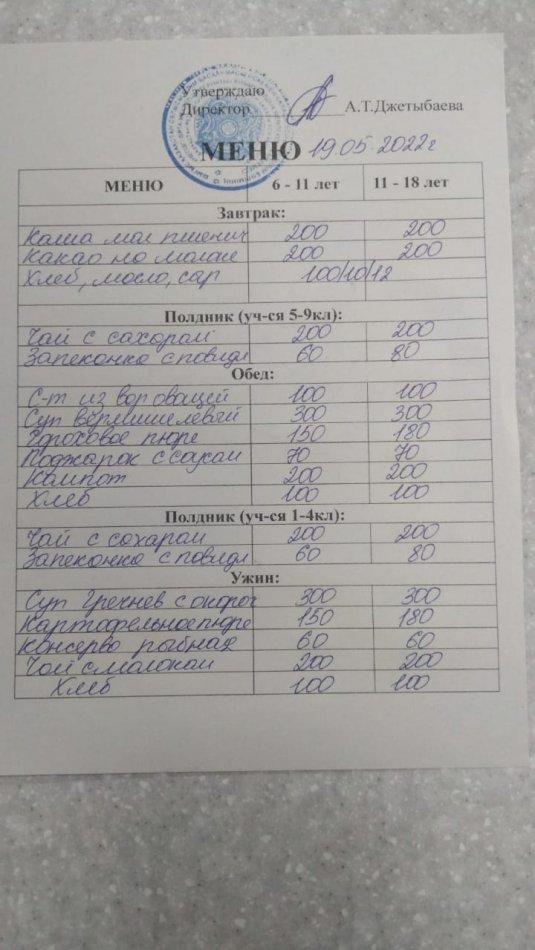 Утверждаю
Директор А.Т.Джетыбаева
МЕНЮ 19.05.2022г
МЕНЮ 6 - 11 лет 11 - 18 лет
Завтрак:
Каша мол пшенич 200 200
Какао на молоке 200 200
Хлеб, масло, сыр 100/10/12
Полдник (уч-ся 5-9кл):
Чай с сахаром 200 200
Запеканка с повидл 60 80
Обед:
С-т из вар овощей 100 100
Суп вермишелевый 300 300
Гороховое пюре 150 180
Поджарок с соусом 70 70
Компот 200 200
Хлеб 100 100
Полдник (уч-ся 1-4кл):
Чай с сахаром 200 200
Запеканка с повидл 60 80
Ужин:
Суп гречнев с окороч 300 300
Картофельное пюре 150 180
Консерва рыбная 60 60
Чай с молоком 200 200
Хлеб 100 100